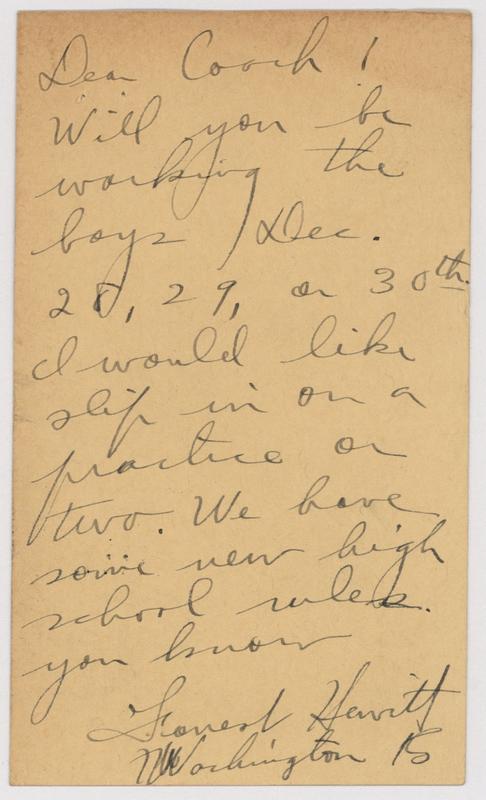 Dear Coach!
Will you be
working the
boys Dec.
28, 29, or 30th.
I would like
slip in on a
practice or
two. We have
some new high
school rules.
you know
Forrest Hewitt
Washington